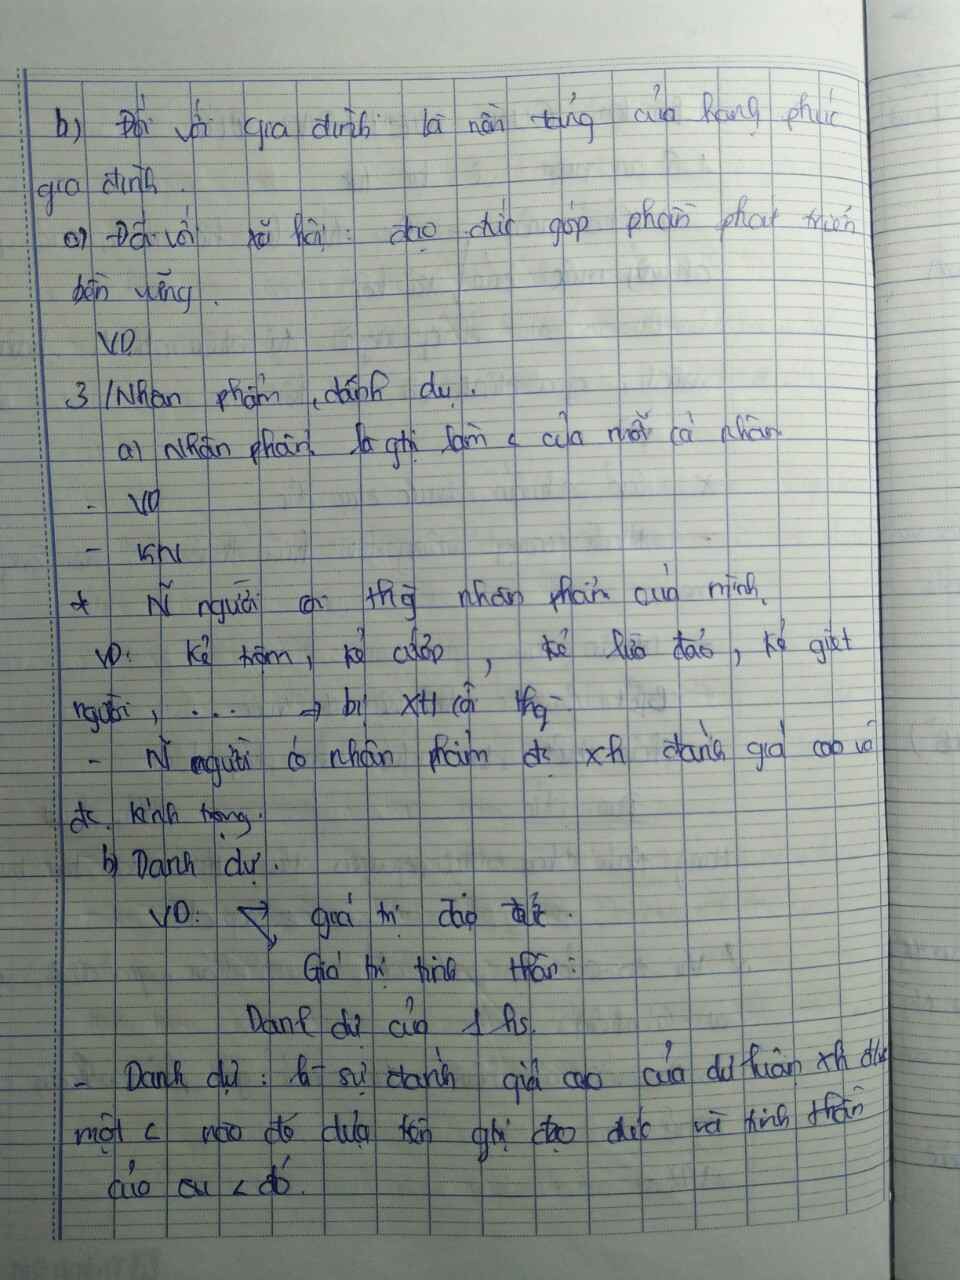 b) Đối với gia đình là nền tảng của hạng phúc
gia đình.
a) Đối với xã hội: đạo đức góp phần phát triển
bền vững.
VD
3/Nhân phẩm, danh dự.
a) Nhân phẩm là giá làm < của mỗi cá nhân
- VD
- Khi
* N̄ người coi thg̀ nhân phẩm của mình.
VD: Kẻ trộm, kẻ cướp, kẻ lừa đảo, kẻ giết
người, .... → bị XH coi thg̀
- N̄ người có nhân phẩm đc xh đánh giá cao và
đc kính trọng.
b) Danh dự.
VD: giá trị đạo đức.
Giá trị tinh thần:
Danh dự của 1 hs.
- Danh dự: là sự đánh giá cao của dư luận xh đối
một < nào đó dựa trên giá đạo đức và tinh thần
của < đó.